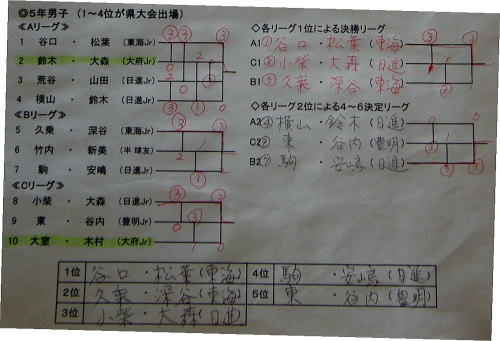 ◎5年男子（1～4位が県大会出場）
≪Aリーグ≫
1 谷口 ・ 松葉 (東海Jr)
2 鈴木 ・ 大森 (大府Jr)
3 荒谷 ・ 山田 (日進Jr)
4 横山 ・ 鈴木 (日進Jr)
≪Bリーグ≫
5 久乗 ・ 深谷 (東海Jr)
6 竹内 ・ 新美 (半球友)
7 駒 ・ 安嶋 (日進Jr)
≪Cリーグ≫
8 小柴 ・ 大森 (日進Jr)
9 東 ・ 谷内 (豊明Jr)
10 大室 ・ 木村 (大府Jr)
◇各リーグ1位による決勝リーグ
A1① 谷口・松葉(東海)
C1⑧ 小柴・大森(日進)
B1⑤ 久乗・深谷(東海)
◇各リーグ2位による4～6決定リーグ
A2④ 横山・鈴木(日進)
C2⑨ 東・谷内(豊明)
B2⑦ 駒・安嶋(日進)
1位 谷口・松葉(東海) 4位 駒・安嶋(日進)
2位 久乗・深谷(東海) 5位 東・谷内(豊明)
3位 小柴・大森(日進)